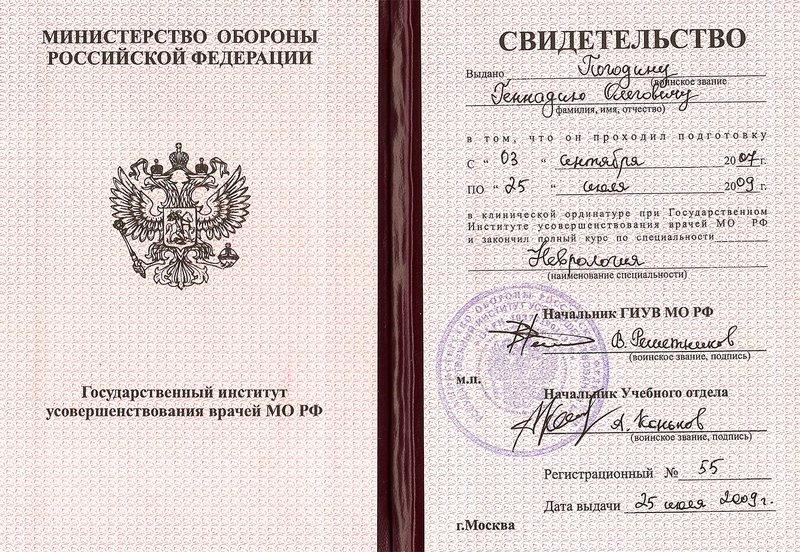 МИНИСТЕРСТВО ОБОРОНЫ
РОССИЙСКОЙ ФЕДЕРАЦИИ
Государственный институт
усовершенствования врачей МО РФ
СВИДЕТЕЛЬСТВО
Выдано Погодину
(воинское звание
Геннадию Олеговичу
фамилия, имя, отчество)
в том, что он проходил подготовку
С “ 03 “ сентября 2007 г.
ПО “ 25 “ июля 2009 г.
в клинической ординатуре при Государственном
Институте усовершенствования врачей МО РФ
и закончил полный курс по специальности
Неврология
(наименование специальности)
Начальник ГИУВ МО РФ
В. Решетников
(воинское звание, подпись)
м.п.
Начальник Учебного отдела
А. Коньков
(воинское звание, подпись)
Регистрационный № 55
Дата выдачи 25 июля 2009 г.
г.Москва